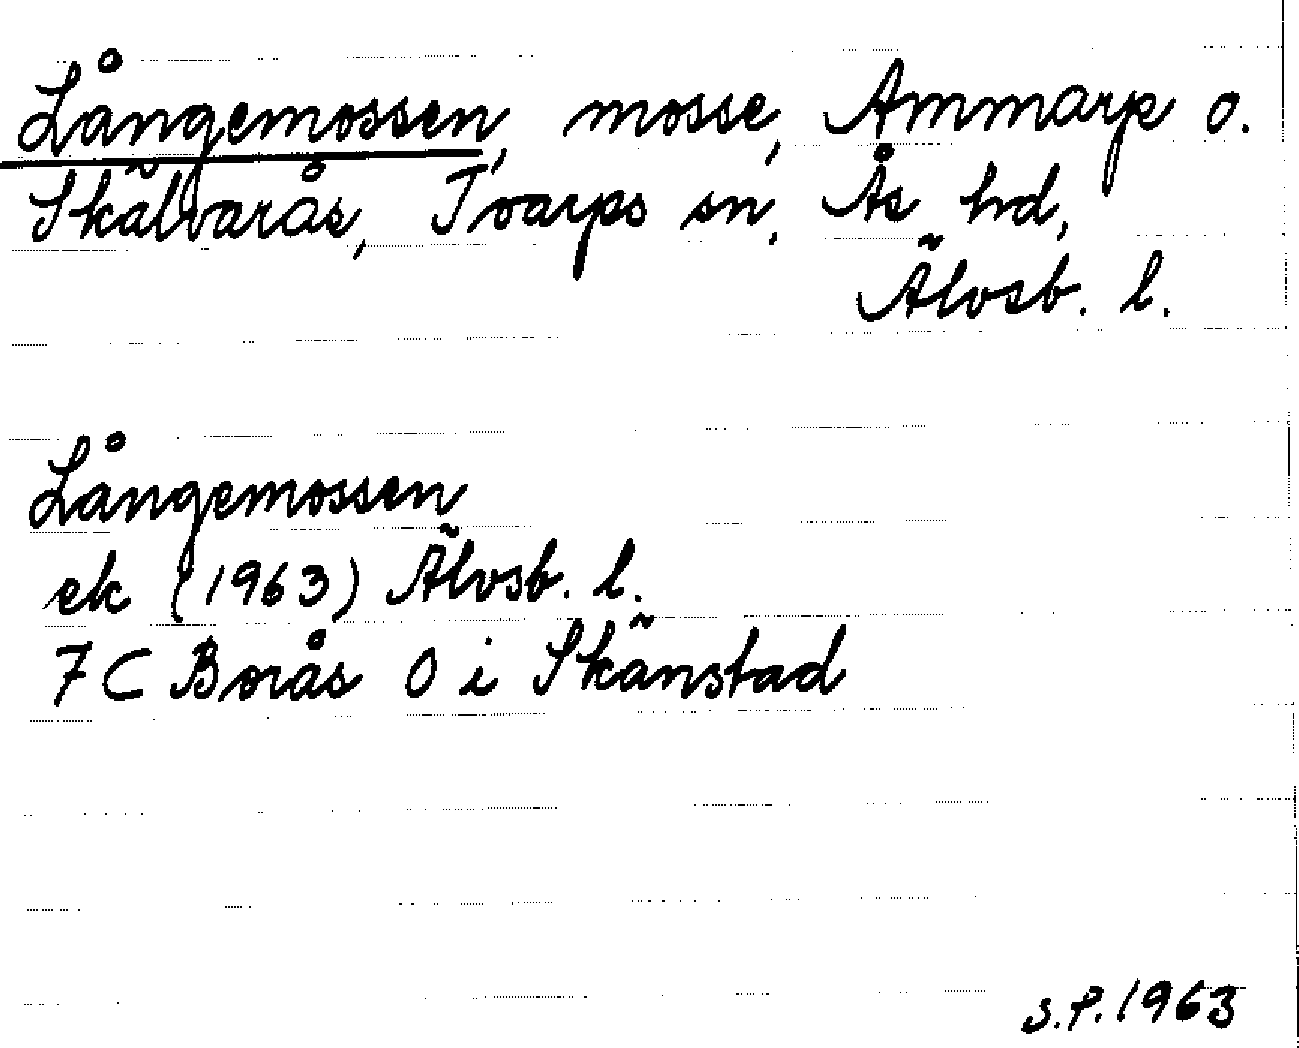 Långemossen, mosse, Ammarp o.
Skälvarås, Tvarps sn, Ås hd,
Älvsb. l.
Långemossen
ek (1963) Älvsb. l.
7 C Borås O i Skänstad
S.P. 1963